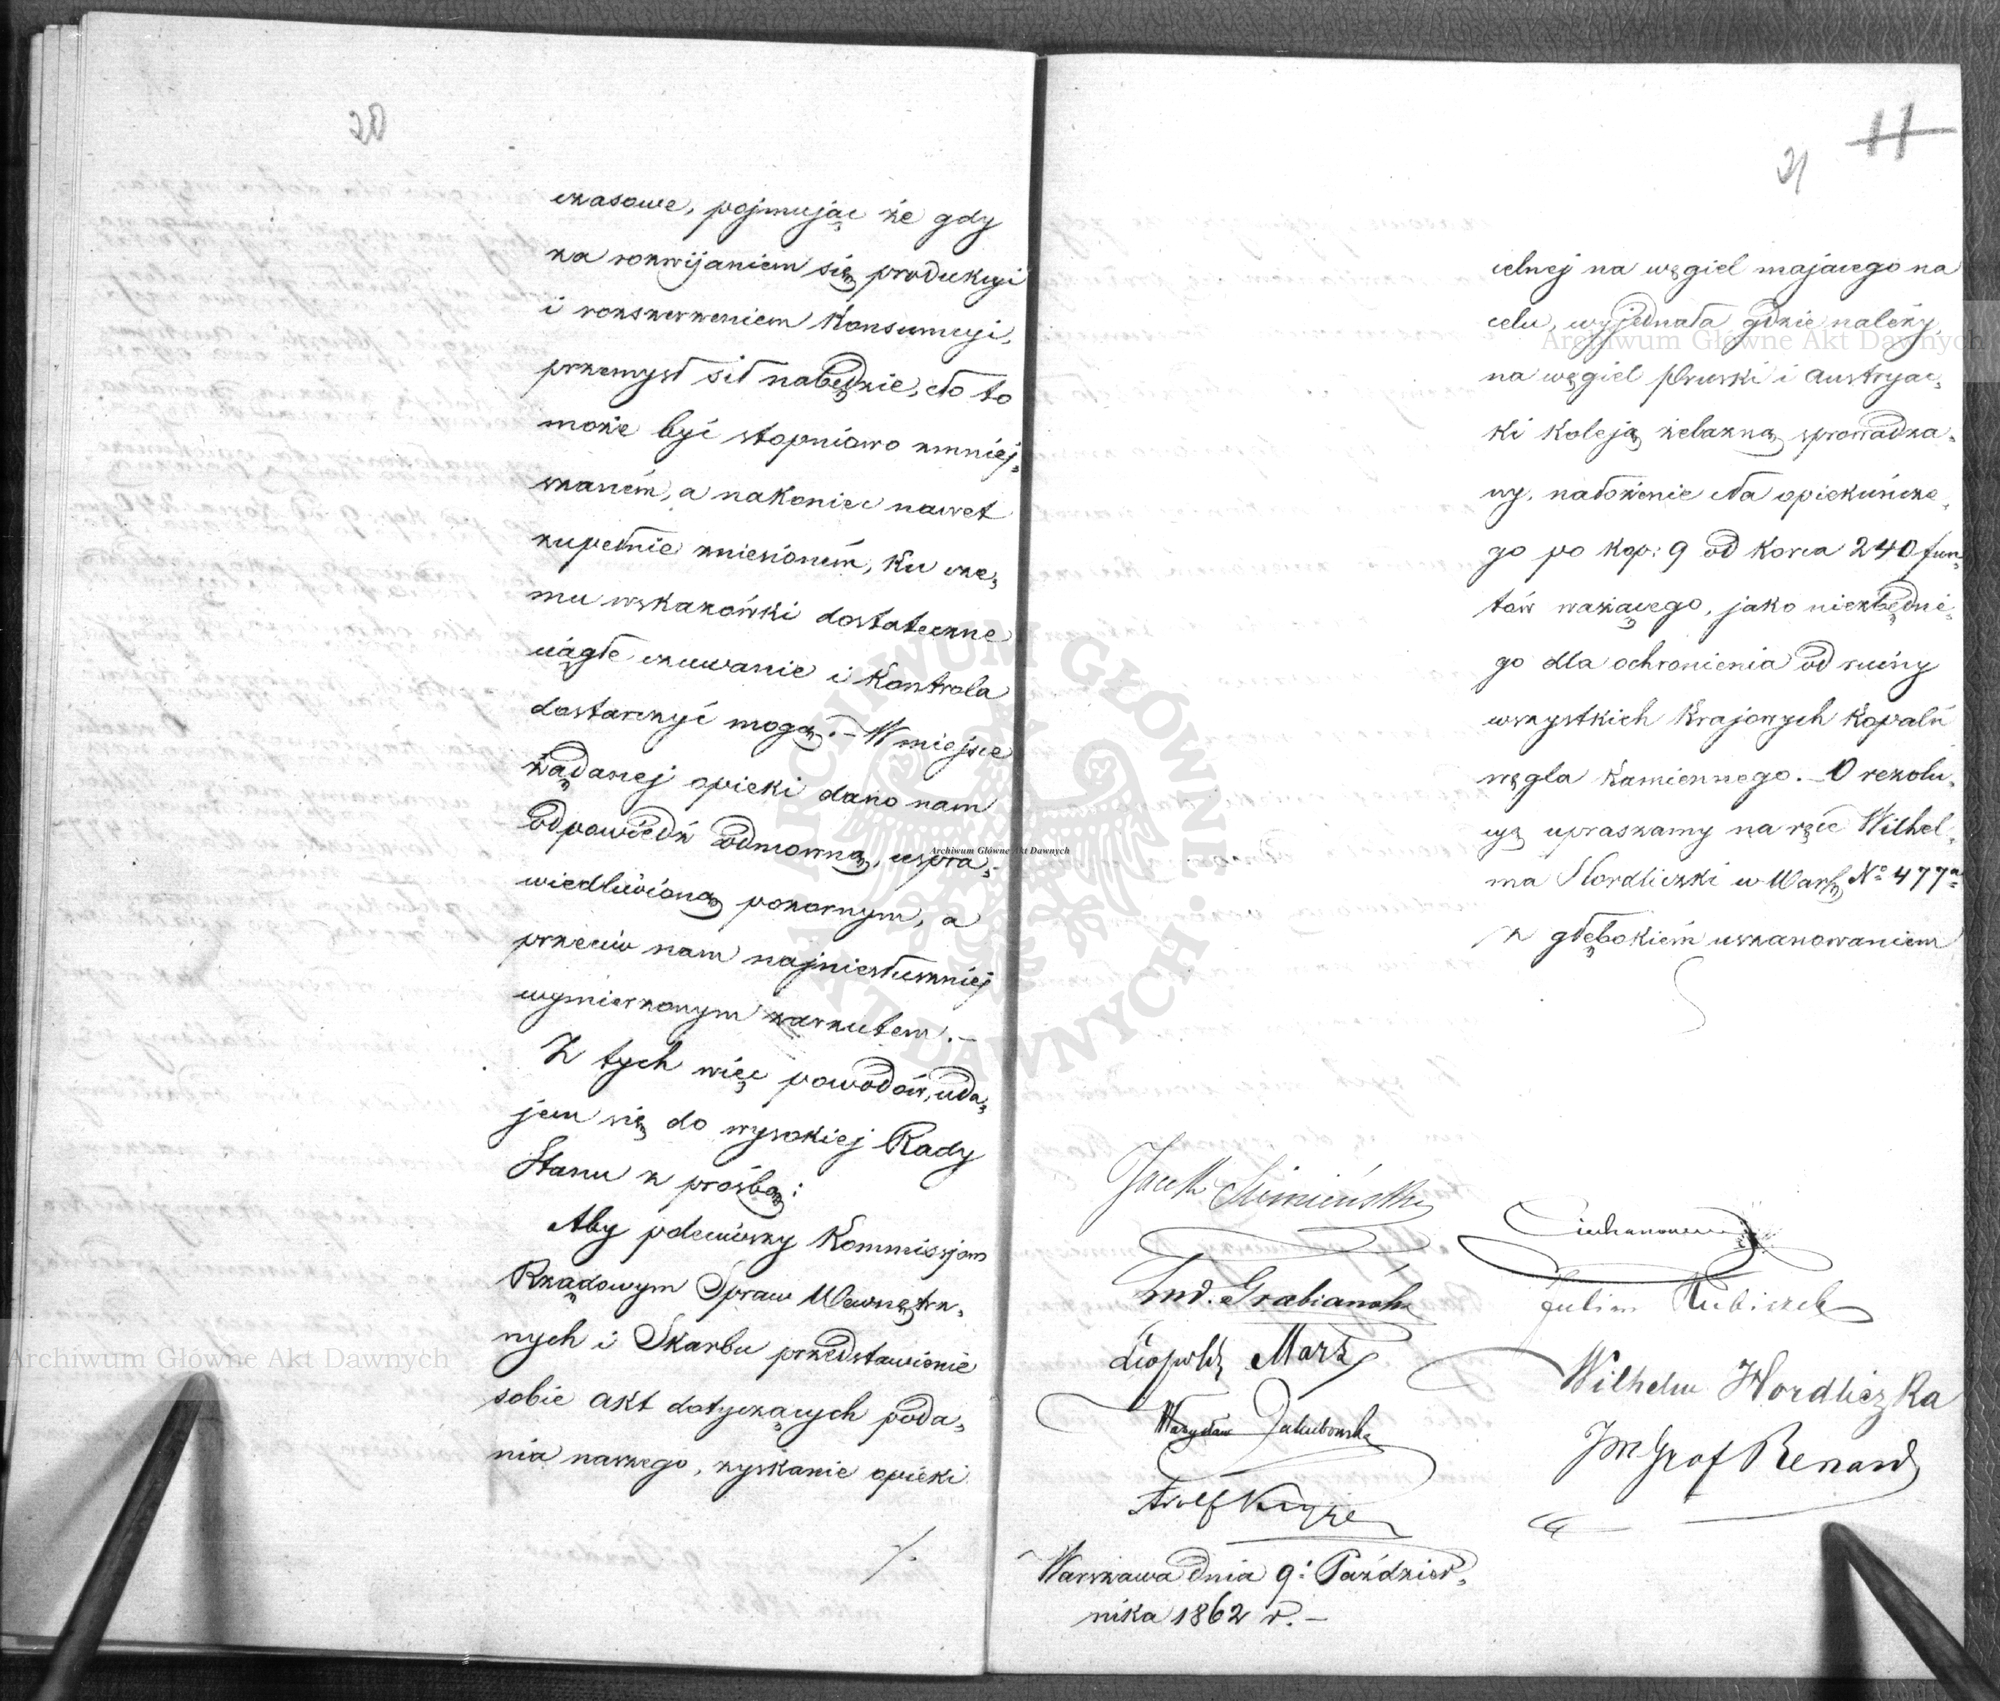 20
czasowe, pojmując że gdy
za rozwijaniem się produkcyi
i rozszerzeniem konsumcyi,
przemysł sił nabędzie, cło to
może być stopniowo zmniej-
szaném, a nakoniec nawet
zupełnie zniesioném, ku cze-
mu wskazówki dostateczne
ciągłe czuwanie i kontrola
dostarczyć mogą. – W miejsce
żądanej opieki dano nam
odpowiedź odmowną, uspra-
wiedliwioną pozornym, a
przeciw nam najniesłuszniej
wymierzonym zarzutem. –
Z tych więc powodów, uda-
jem się do wysokiej Rady
Stanu z prośbą:
Aby poleciwszy Kommissjom
Rządowym Spraw Wewnętrz-
nych i Skarbu przedstawienie
sobie akt dotyczących poda-
nia naszego, zyskanie opieki
./.
11
21
celnej na węgiel mającego na
celu, wyjednała gdzie należy,
na węgiel Pruski i Austryac-
ki koleją żelazną sprowadza-
ny, nałożenie cła opiekuńcze-
go po kop: 9 od korca 240 fun-
tów ważącego, jako niezbędne-
go dla ochronienia od ruiny
wszystkich krajowych kopalń
węgla kamiennego. – O rezolu-
cyę upraszamy na ręce Wilhel-
ma Hordliczki w Warsz. No 477a
z głębokiém uszanowaniem
Jacek Siemieński
Ciechanowski
Lud. Grabiański
Juliw Kubiczek
Leopold Marx
Wilhelm Hordliczka
Władysław Jakubowski
Graf Renard
Adolf Kryże
Warszawa dnia 9: Paździer-
nika 1862 r. –
Archiwum Główne Akt Dawnych
Archiwum Główne Akt Dawnych
Archiwum Główne Akt Dawnych
ARCHIWUM GŁÓWNE AKT DAWNYCH